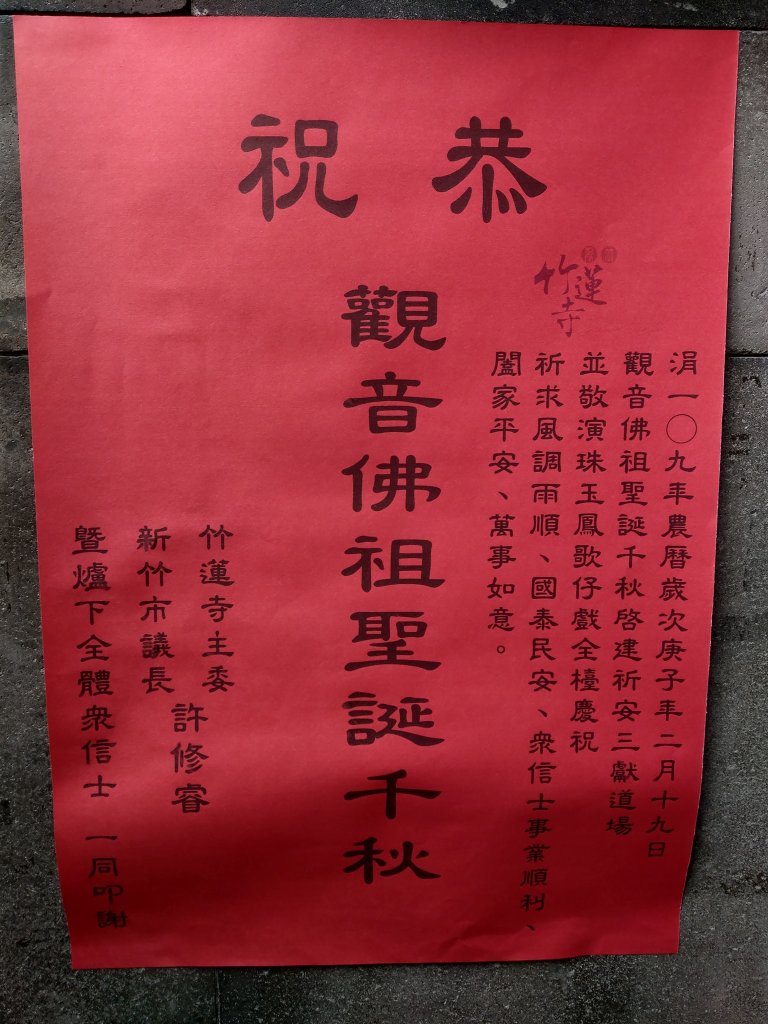 恭祝
竹蓮寺
涓一〇九年農曆歲次庚子年二月十九日
觀音佛祖聖誕千秋啓建祈安三獻道場
並敬演珠玉鳳歌仔戲全檯慶祝
祈求風調雨順、國泰民安、衆信士事業順利、
闔家平安、萬事如意。
觀音佛祖聖誕千秋
竹蓮寺主委
新竹市議長
許修睿
暨爐下全體衆信士 一同叩謝